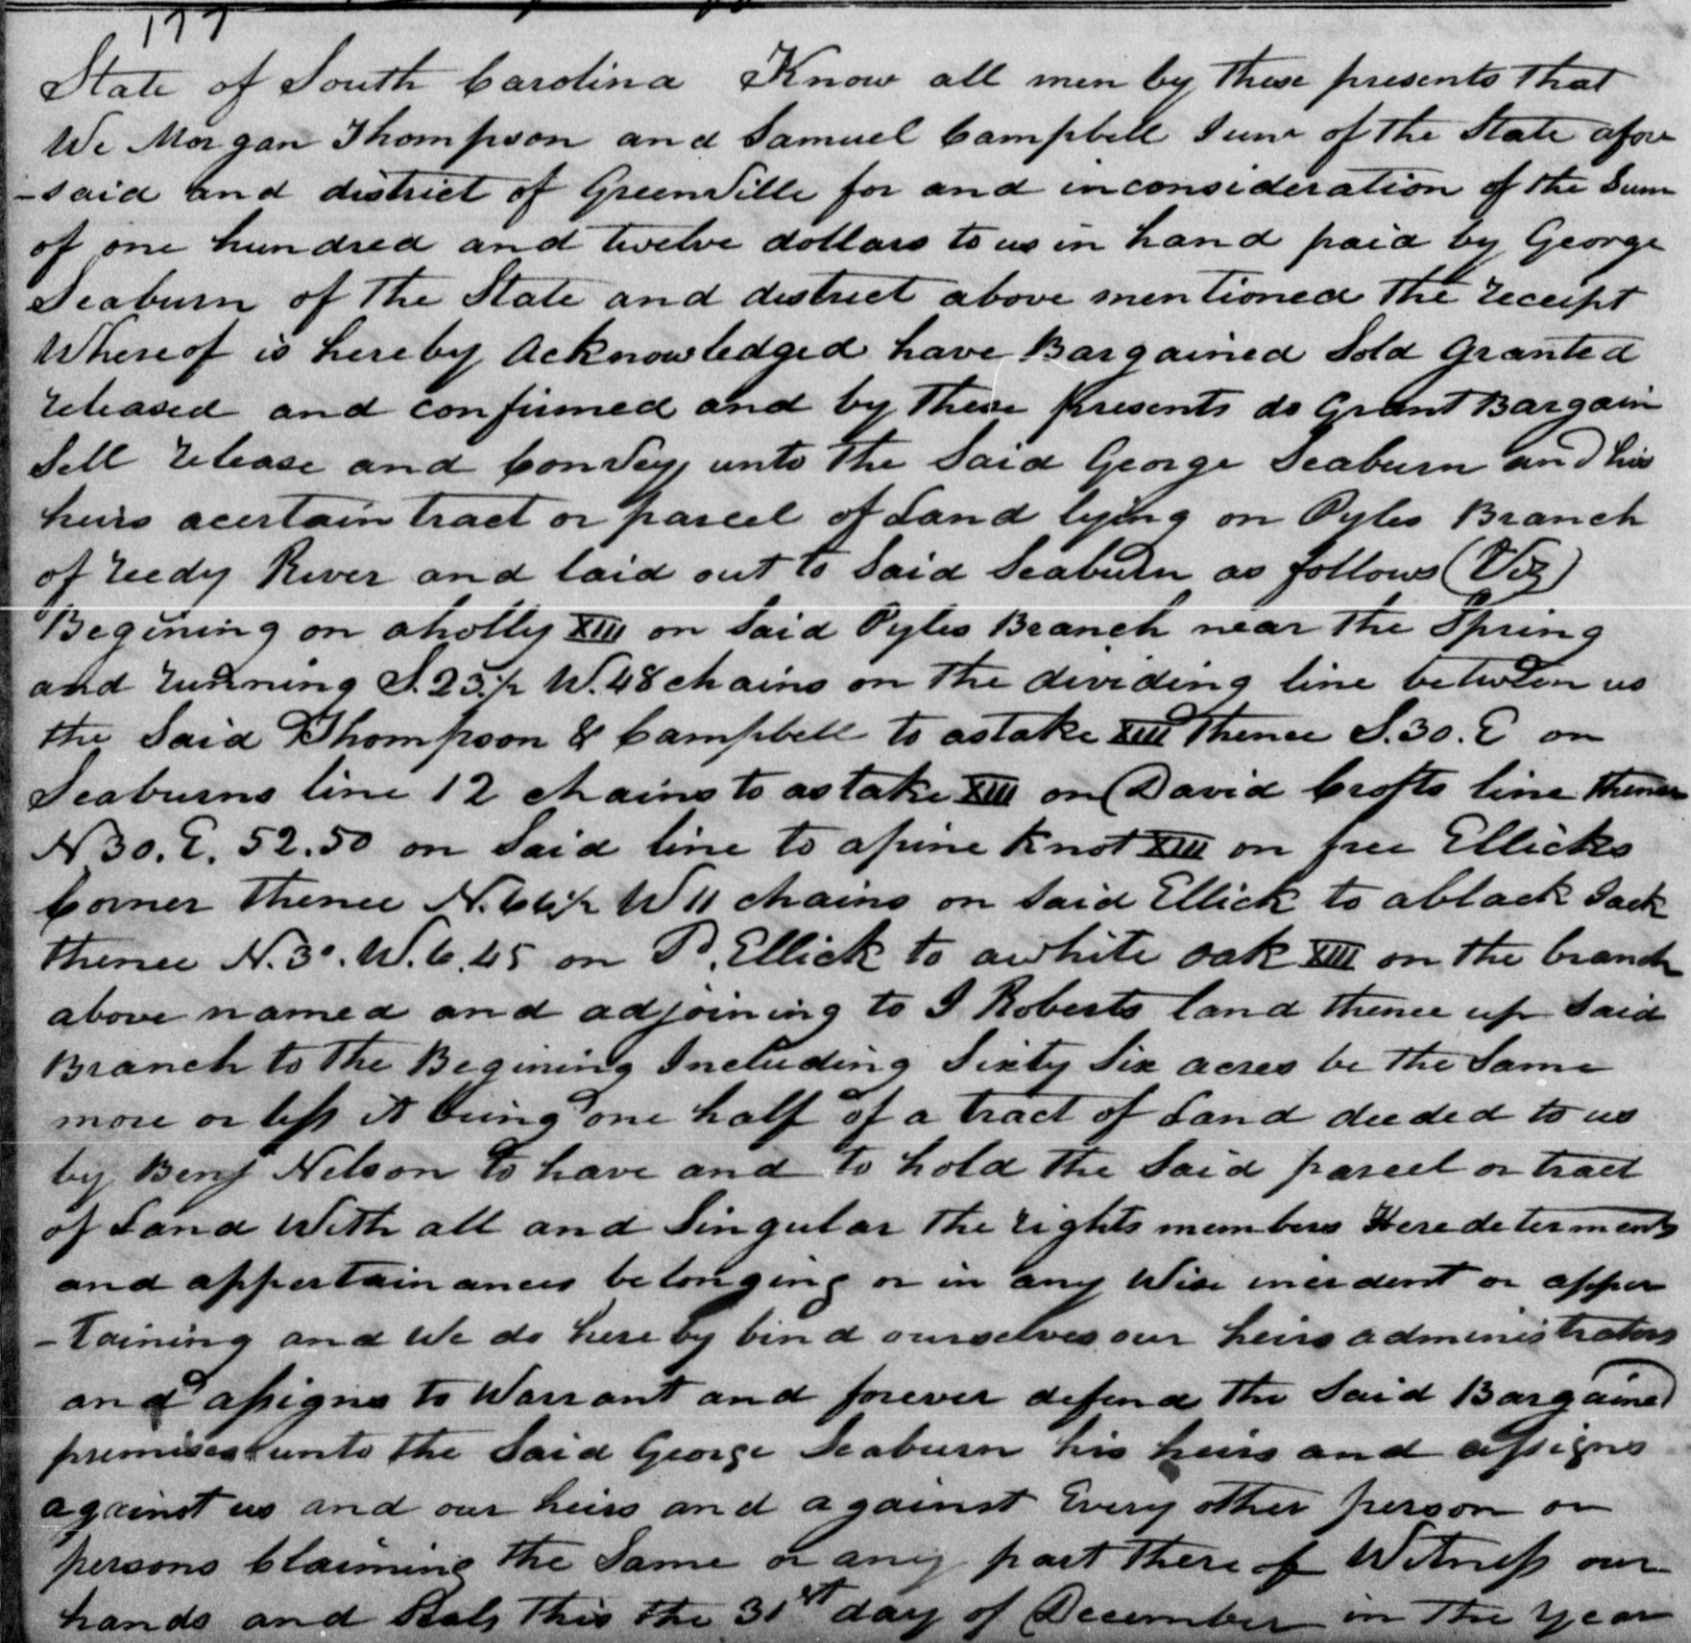 177
State of South Carolina Know all men by these presents that
We Morgan Thompson and Samuel Campbell Junr of the State afore
-said and district of GreenVille for and inconsideration of the Sum
of one hundred and twelve dollars to us in hand paid by George
Seaburn of the State and district above mentioned the receipt
Whereof is hereby Acknowledged have Bargained Sold Granted
released and confirmed and by these presents do Grant Bargain
Sell release and ConVey unto the Said George Seaburn and his
heirs acertain tract or parcel of Land lying on Pyles Branch
of reedy River and laid out to Said Seaburn as follows (Viz)
Begining on aholly XIII on Said Pyles Branch near the Spring
and running S. 25½ W. 48 chains on the dividing line between us
the Said Thompson & Campbell to astake XIII thence S. 30. E on
Seaburns line 12 chains to astake XIII on David Crofts line thence
N 30. E. 52.50 on Said line to apine Knot XIII on free Ellicks
Corner thence N. W 11 chains on Said Ellick to ablack Jack
thence N. 30. W. 6.45 on P. Ellick to awhite oak XIII on the branch
above named and adjoining to J Roberts land thence up Said
Branch to the Begining Including Sixty Six acres be the Same
more or less it being one half of a tract of Land deeded to us
by Benj Nelson to have and to hold the Said parcel or tract
of Land With all and Singular the rights members Heredeterments
and appertainances belonging or in any Wise incident or apper
-taining and We do hereby bind ourselves our heirs administrators
and assigns to Warrant and forever defend the Said Bargained
premises unto the Said George Seaburn his heirs and assigns
against us and our heirs and against Every other person or
persons Claiming the Same or any part there of Witness our
hands and Seals this the 31st day of December in the year